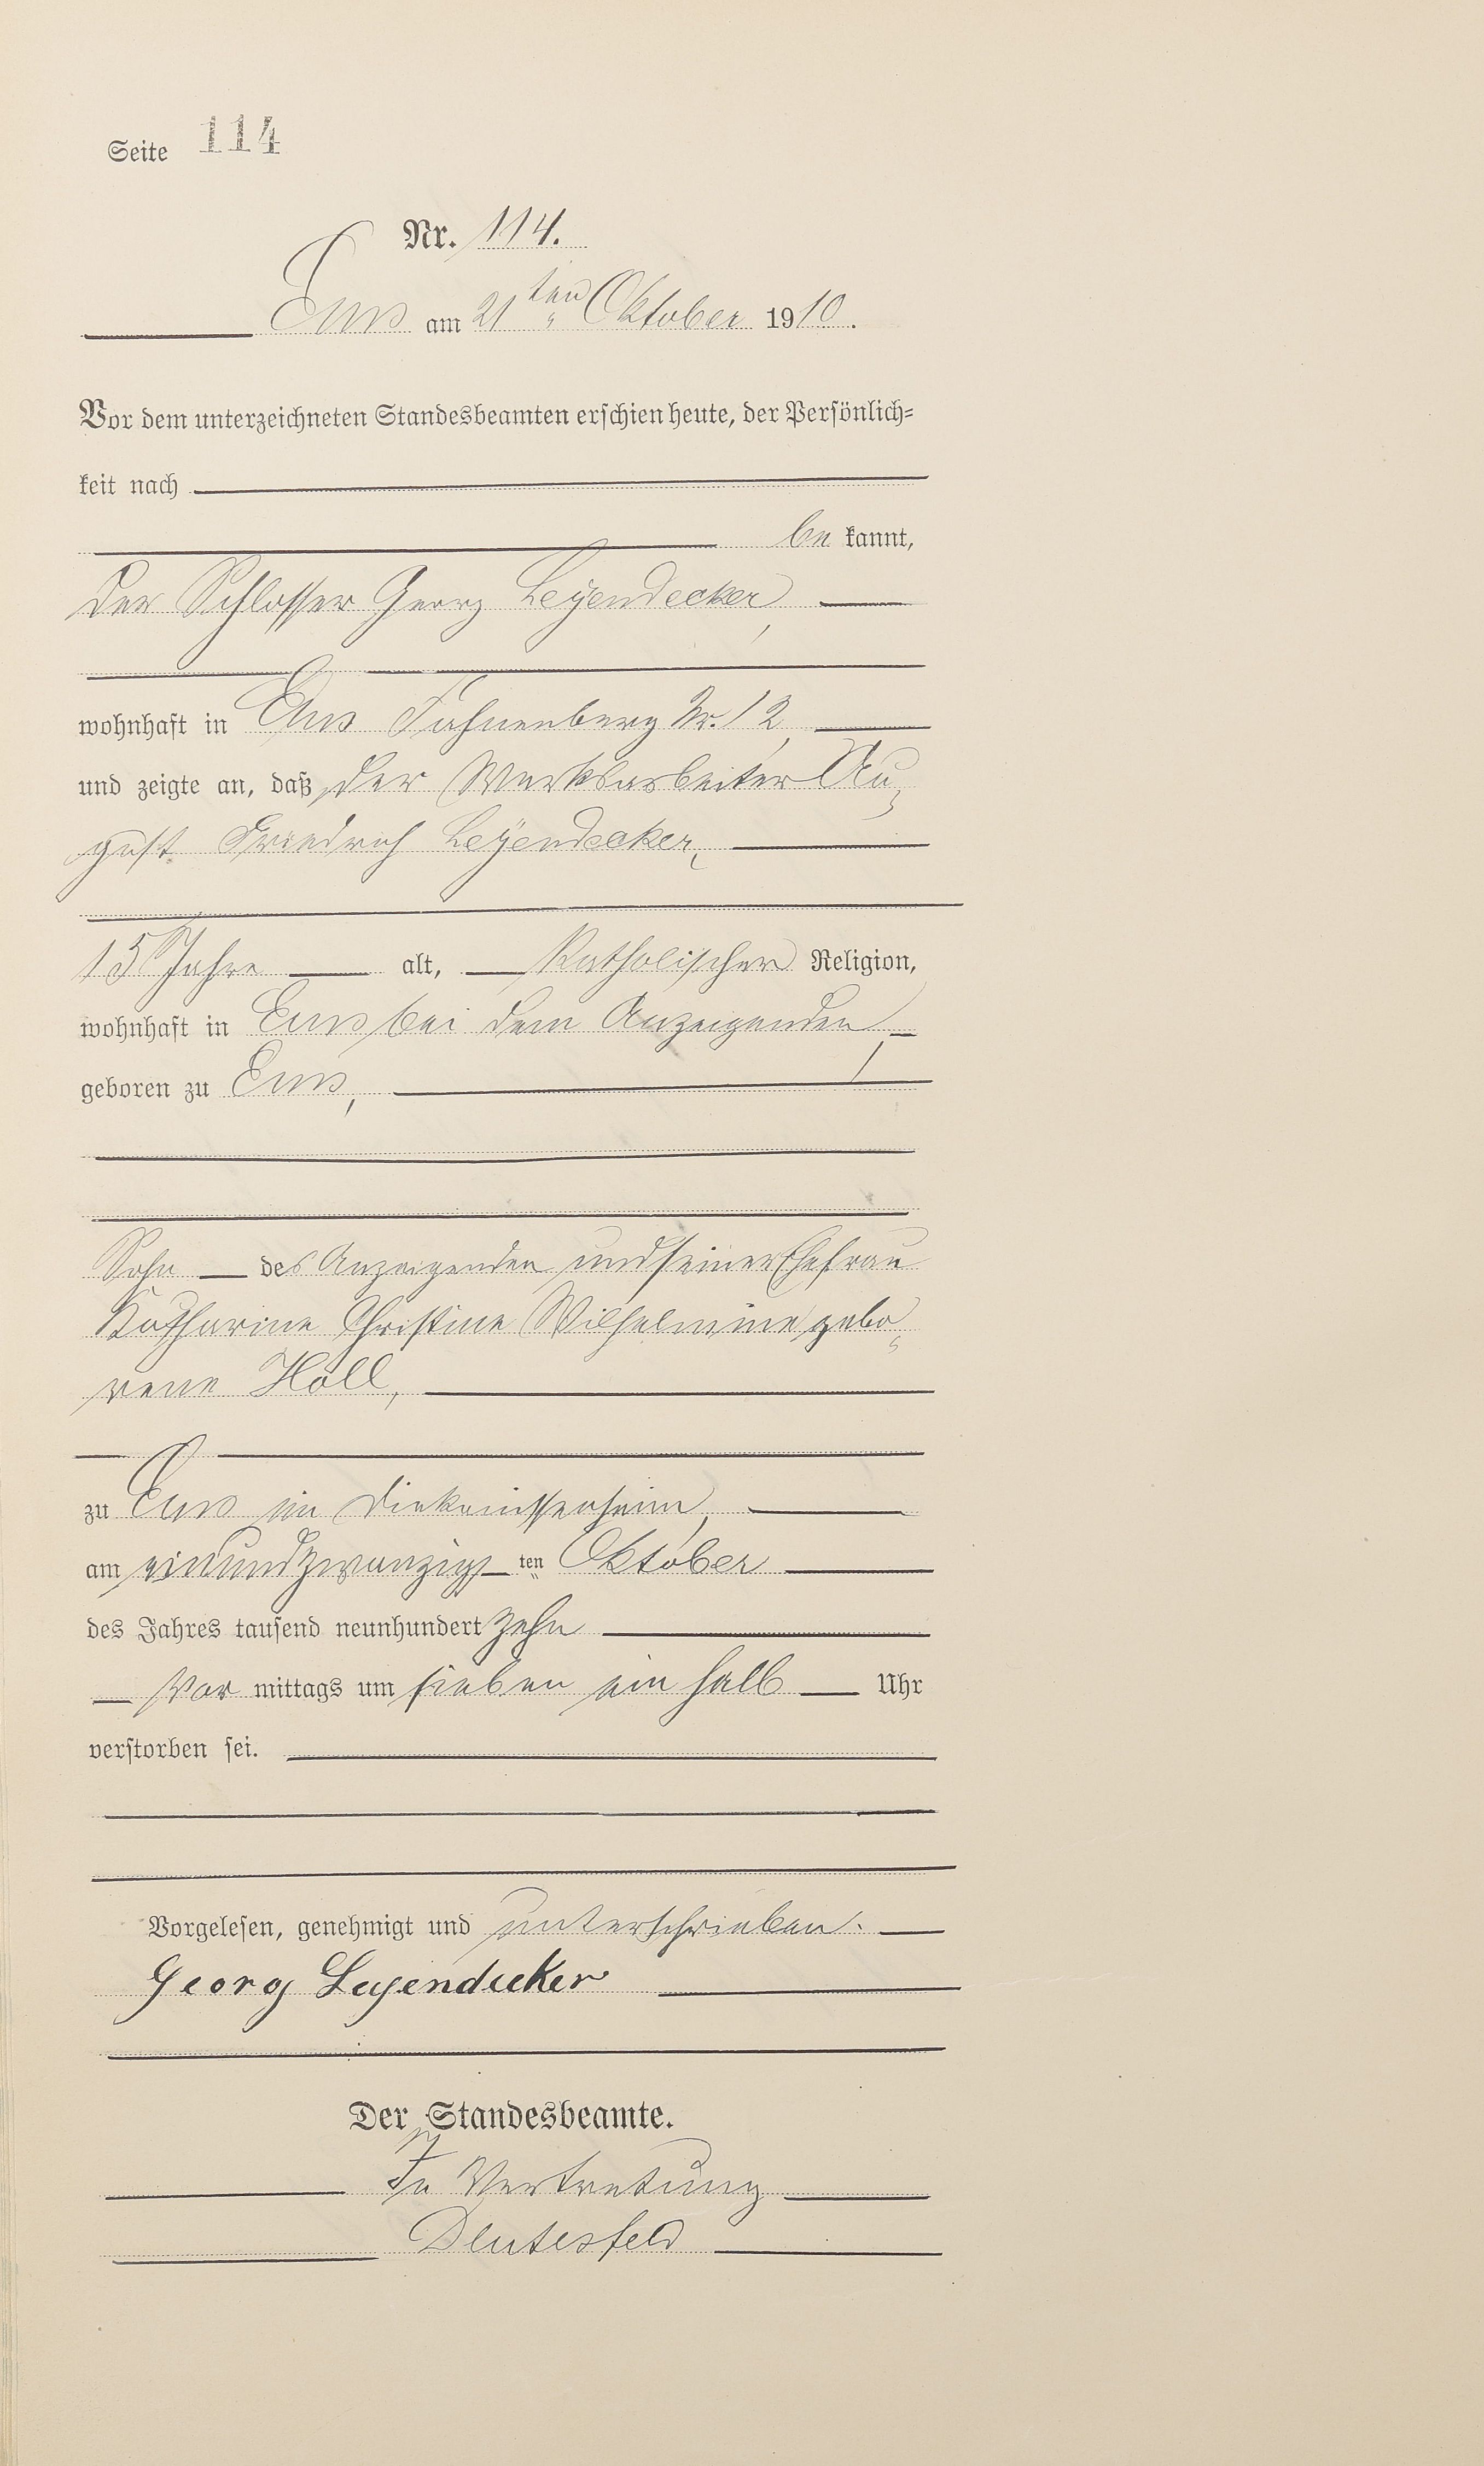 Seite 114
Nr. 114.
Ems am 21ten Oktober 1910.
Vor dem unterzeichneten Standesbeamten erschien heute, der Persönlich=
keit nach
be kannt,
der Schlosser Georg Leÿendecker,
wohnhaft in Ems Fahnenberg Nr. 12,
und zeigte an, daß der Werksarbeiter Au=
gust Friedrich Leÿendecker,
15 Jahre alt, Katholischer Religion,
wohnhaft in Ems bei dem Anzeigenden,
geboren zu Ems,
Sohn des Anzeigenden und seiner Ehefrau
Katharine Christine Wilhelmine gebo=
rene Höll,
zu Ems im Diakonissenheim,
am einundzwanzigsten Oktober
des Jahres tausend neunhundert zehn
Vor mittags um sieben ein halb Uhr
verstorben sei.
Vorgelesen, genehmigt und unterschrieben.
Georg Leyendecker
Der Standesbeamte.
In Vertretung
Deutesfeld